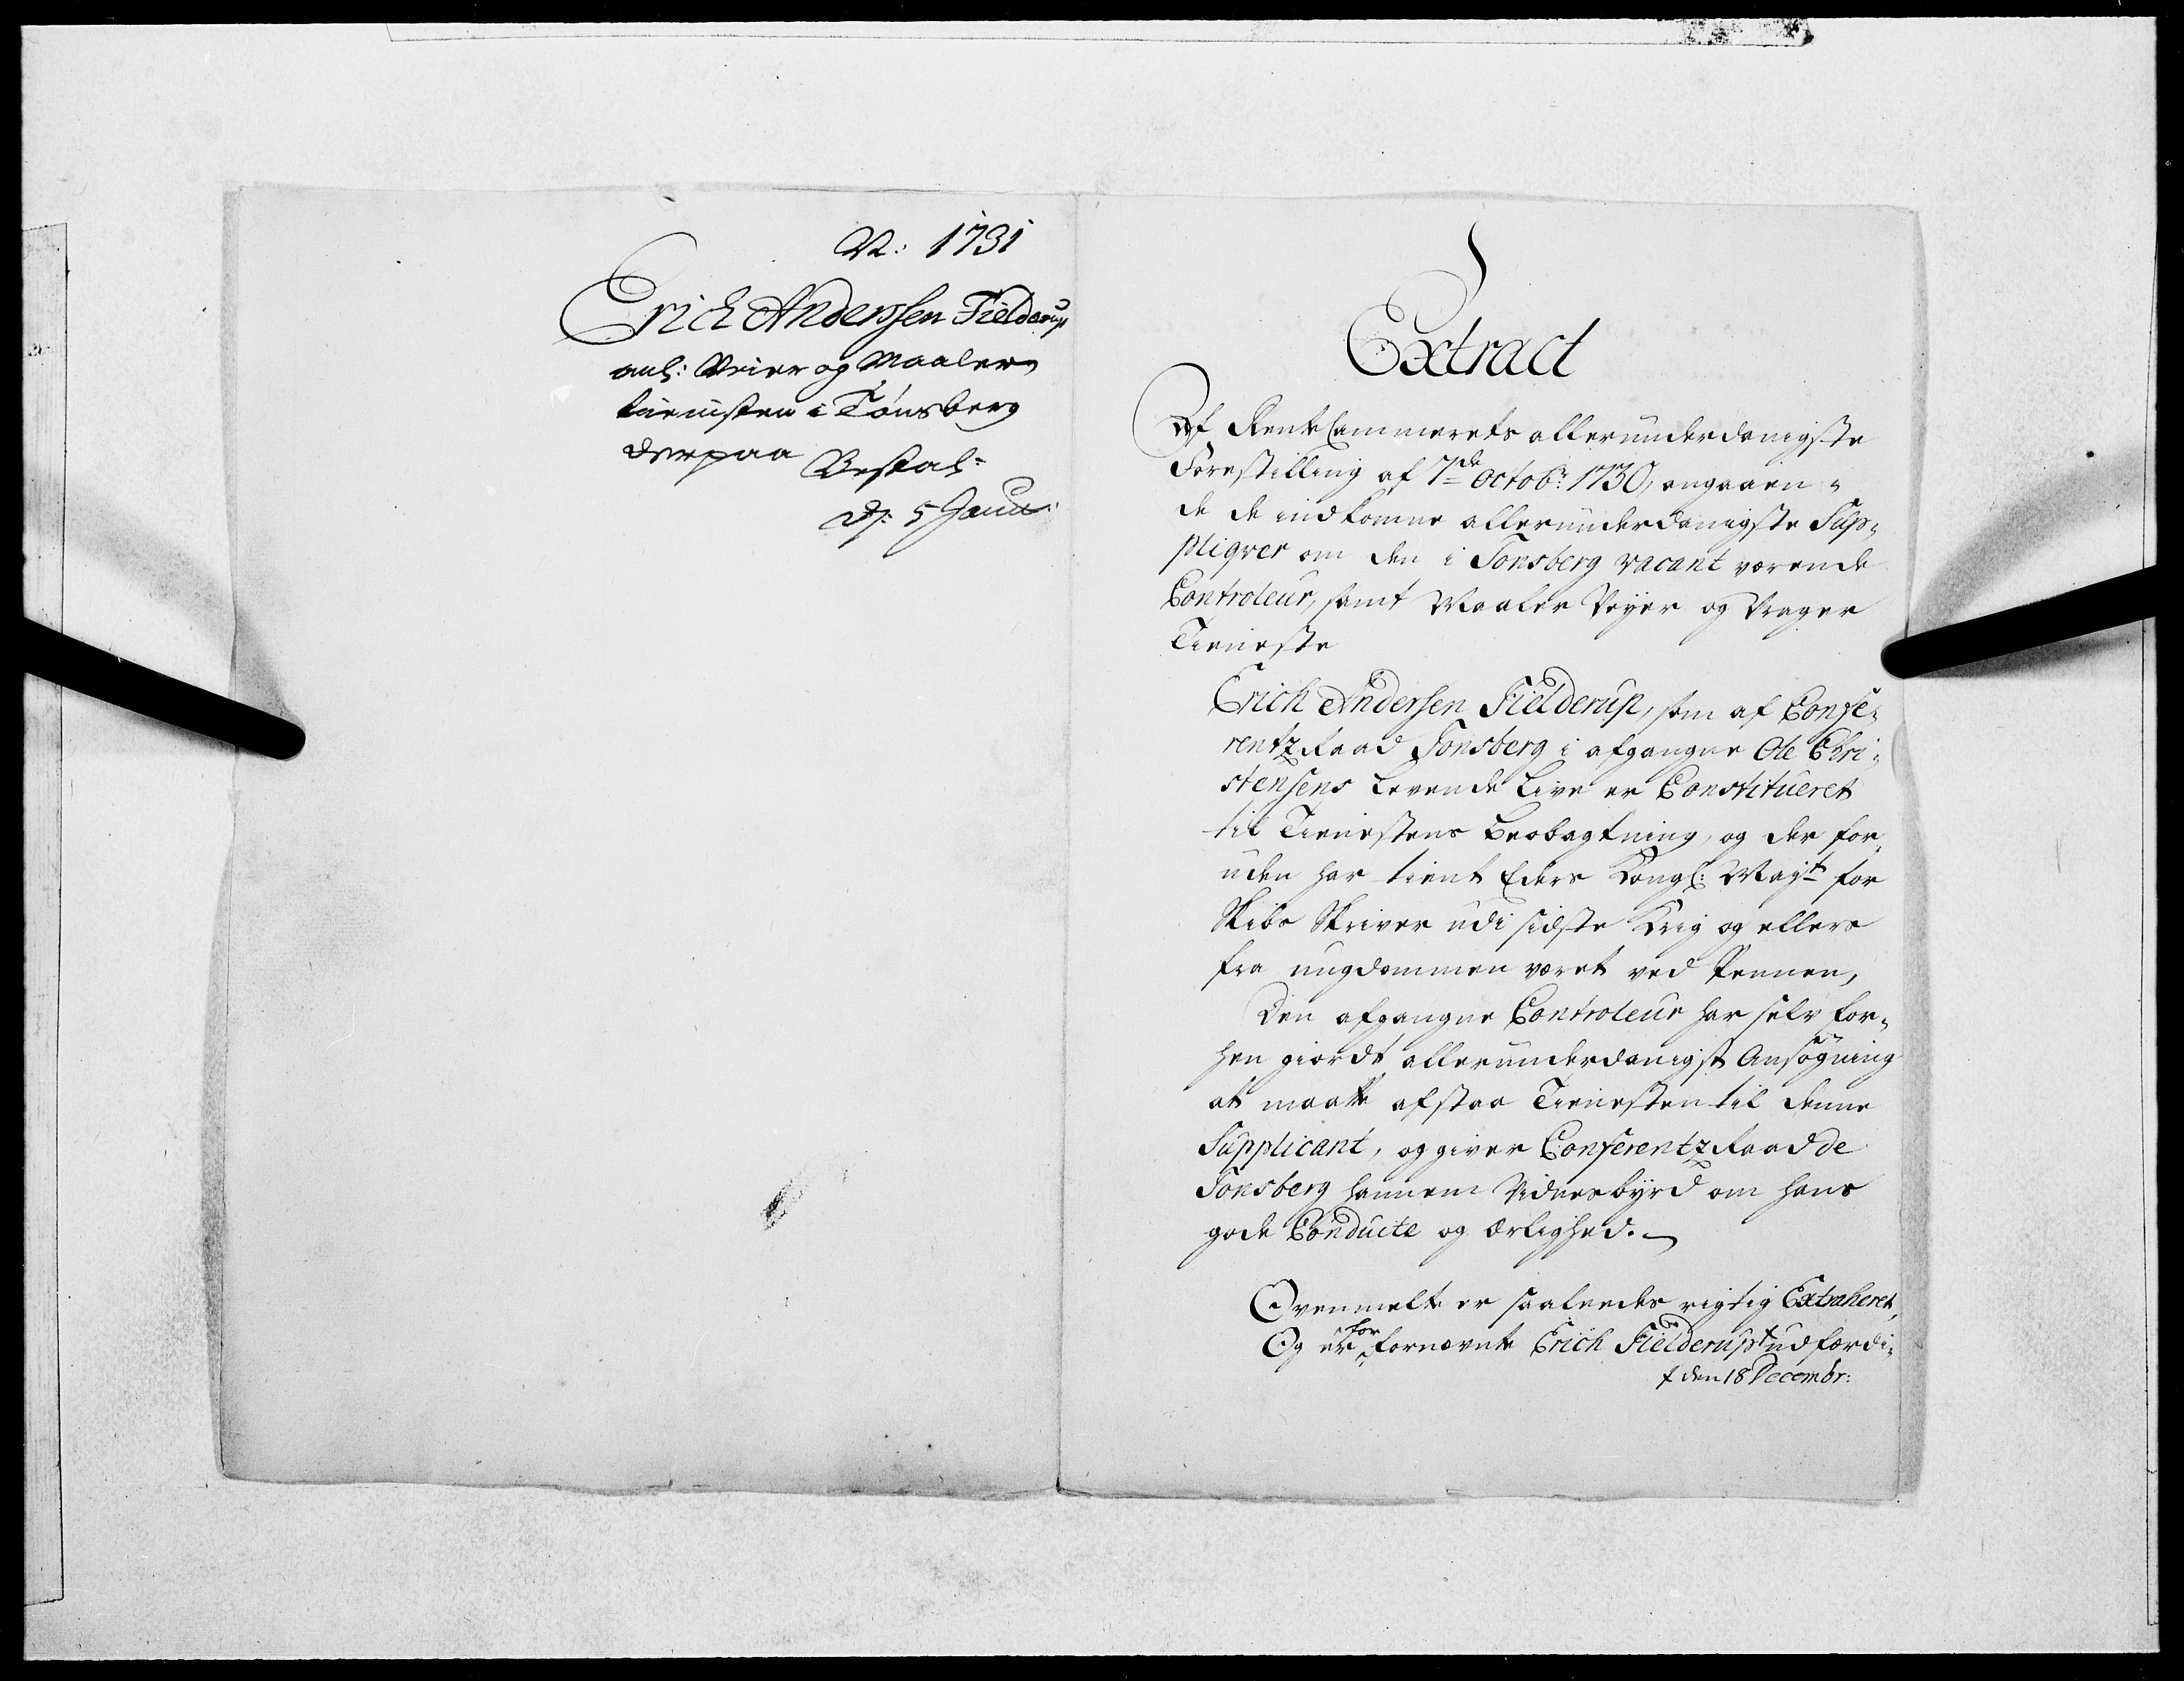 N: 1731
Erich Anderssen Fielderup
anl: Veier og Maaler
tienisten i Tønsberg
derpaa Bestal:
D: 5 Janu:
Extract
Af RenteCammerets allerunderdanigste
Forestilling af 7de Octobr: 1730, angaaen-
de de indkomne allerunderdanigste Sup-
pliqver om den i Tonsberg vacant værende
Controleur, samt Maaler Veyer og Vrager
Tieneste
Erich Andersen Fielderup, som af Confe-
rentz Raad Tonsberg i afgangne Ole Chri-
stensens Levende Live er Constitueret
til Tienestens Beobagtning, og der for-
uden har tient Eders Kongl: Mayt for
Skibs Skriver udi sidste Krig og ellers
fra ungdommen været ved Pennen,
Den afgangne Controleur har selv for-
hen giordt allerunderdanigst Ansøgning
at maatte afstaa Tienesten til denne
Supplicant, og giver Conferentz Raad de
Tonsberg hannem Vidnesbyrd om hans
gode Conduite og Ærlighed.
Ovenmelte er saaledes rigtig Extraheret,
Og er for fornævnte Erich Fielderup udfærdi-
t den 18 Decembr: